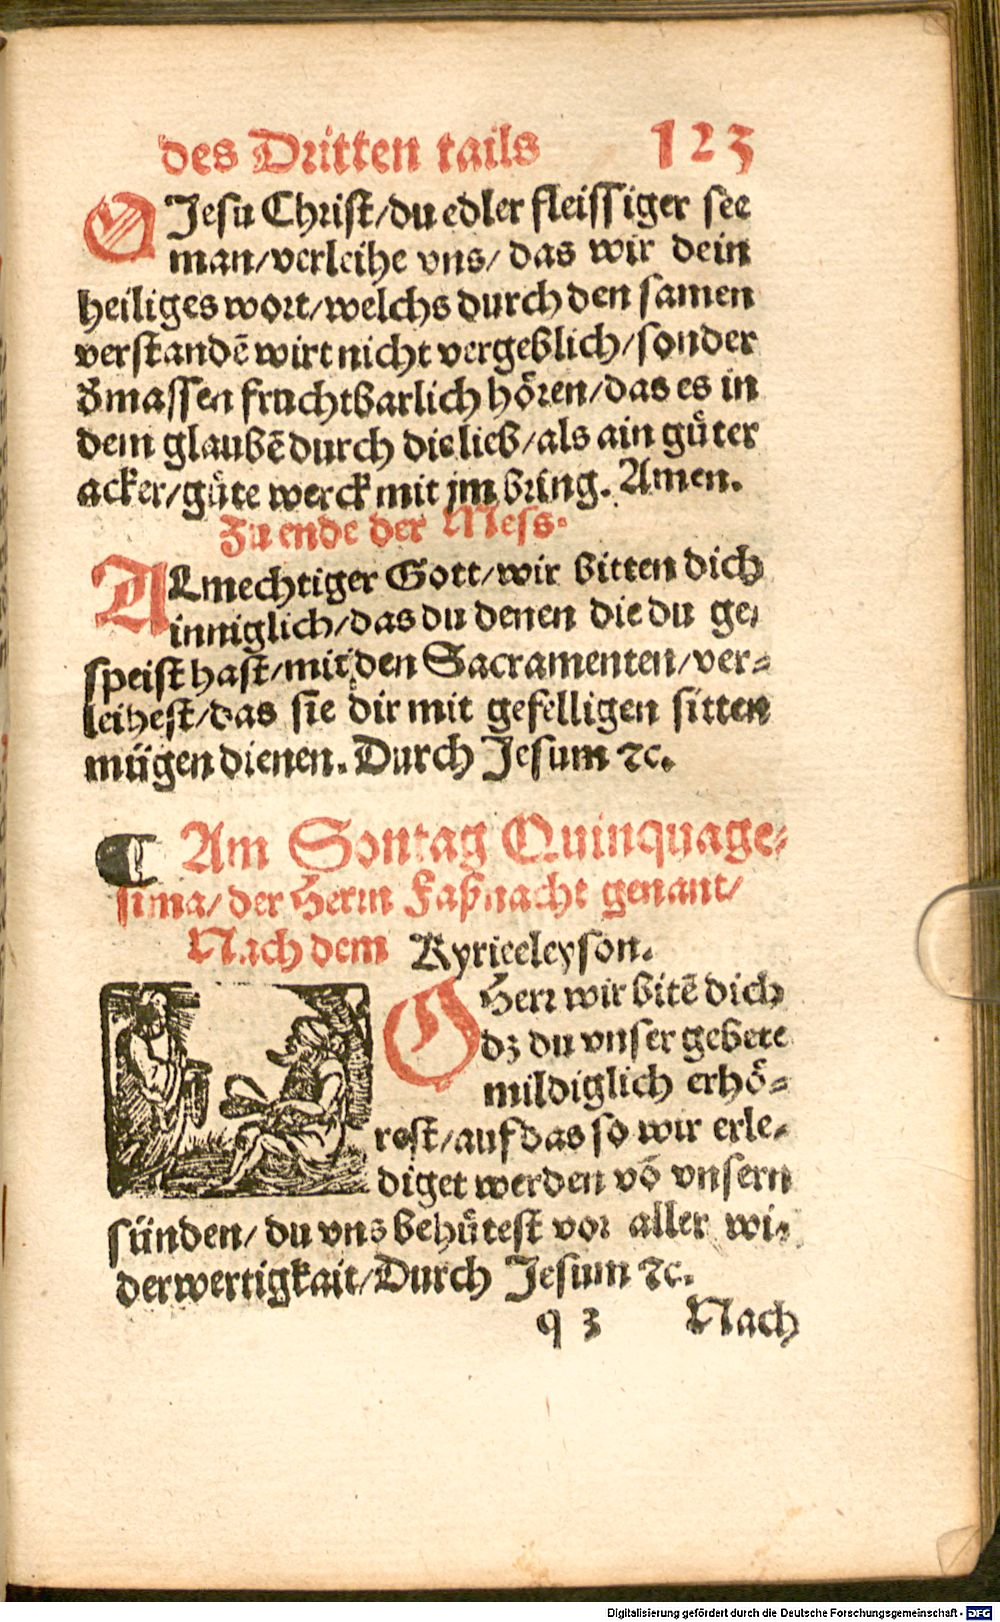 des Dritten tails 123
O Jesu Christ/du edler fleissiger see
man/verleihe vns/das wir dein
heiliges wort/welchs durch den samen
verstandē wirt nicht vergeblich/sonder
Dmassen fruchtbarlich hören/das es in
dem glaubē durch die lieb/als ain gůter
acker/gůte werck mit jm bring. Amen.
Zu ende der Mess.
ALmechtiger Gott/wir bitten dich
inniglich/das du denen die du ge-
speist hast/mit den Sacramenten/ver-
leihest/das sie dir mit gefelligen sitten
mügen dienen. Durch Jesum ⁊c.
¶ Am Sontag Quinquage-
sima/der Herrn Faßnacht genant/
Nach dem Kyrieeleyson.
O Herr wir bitē dich
dz du vnser gebete
mildiglich erhö-
rest/auf das so wir erle-
diget werden vō vnsern
sünden/du vns behůtest vor aller wi-
derwertigkait/Durch Jesum ⁊c.
q 3 Nach
Digitalisierung gefördert durch die Deutsche Forschungsgemeinschaft - DFG